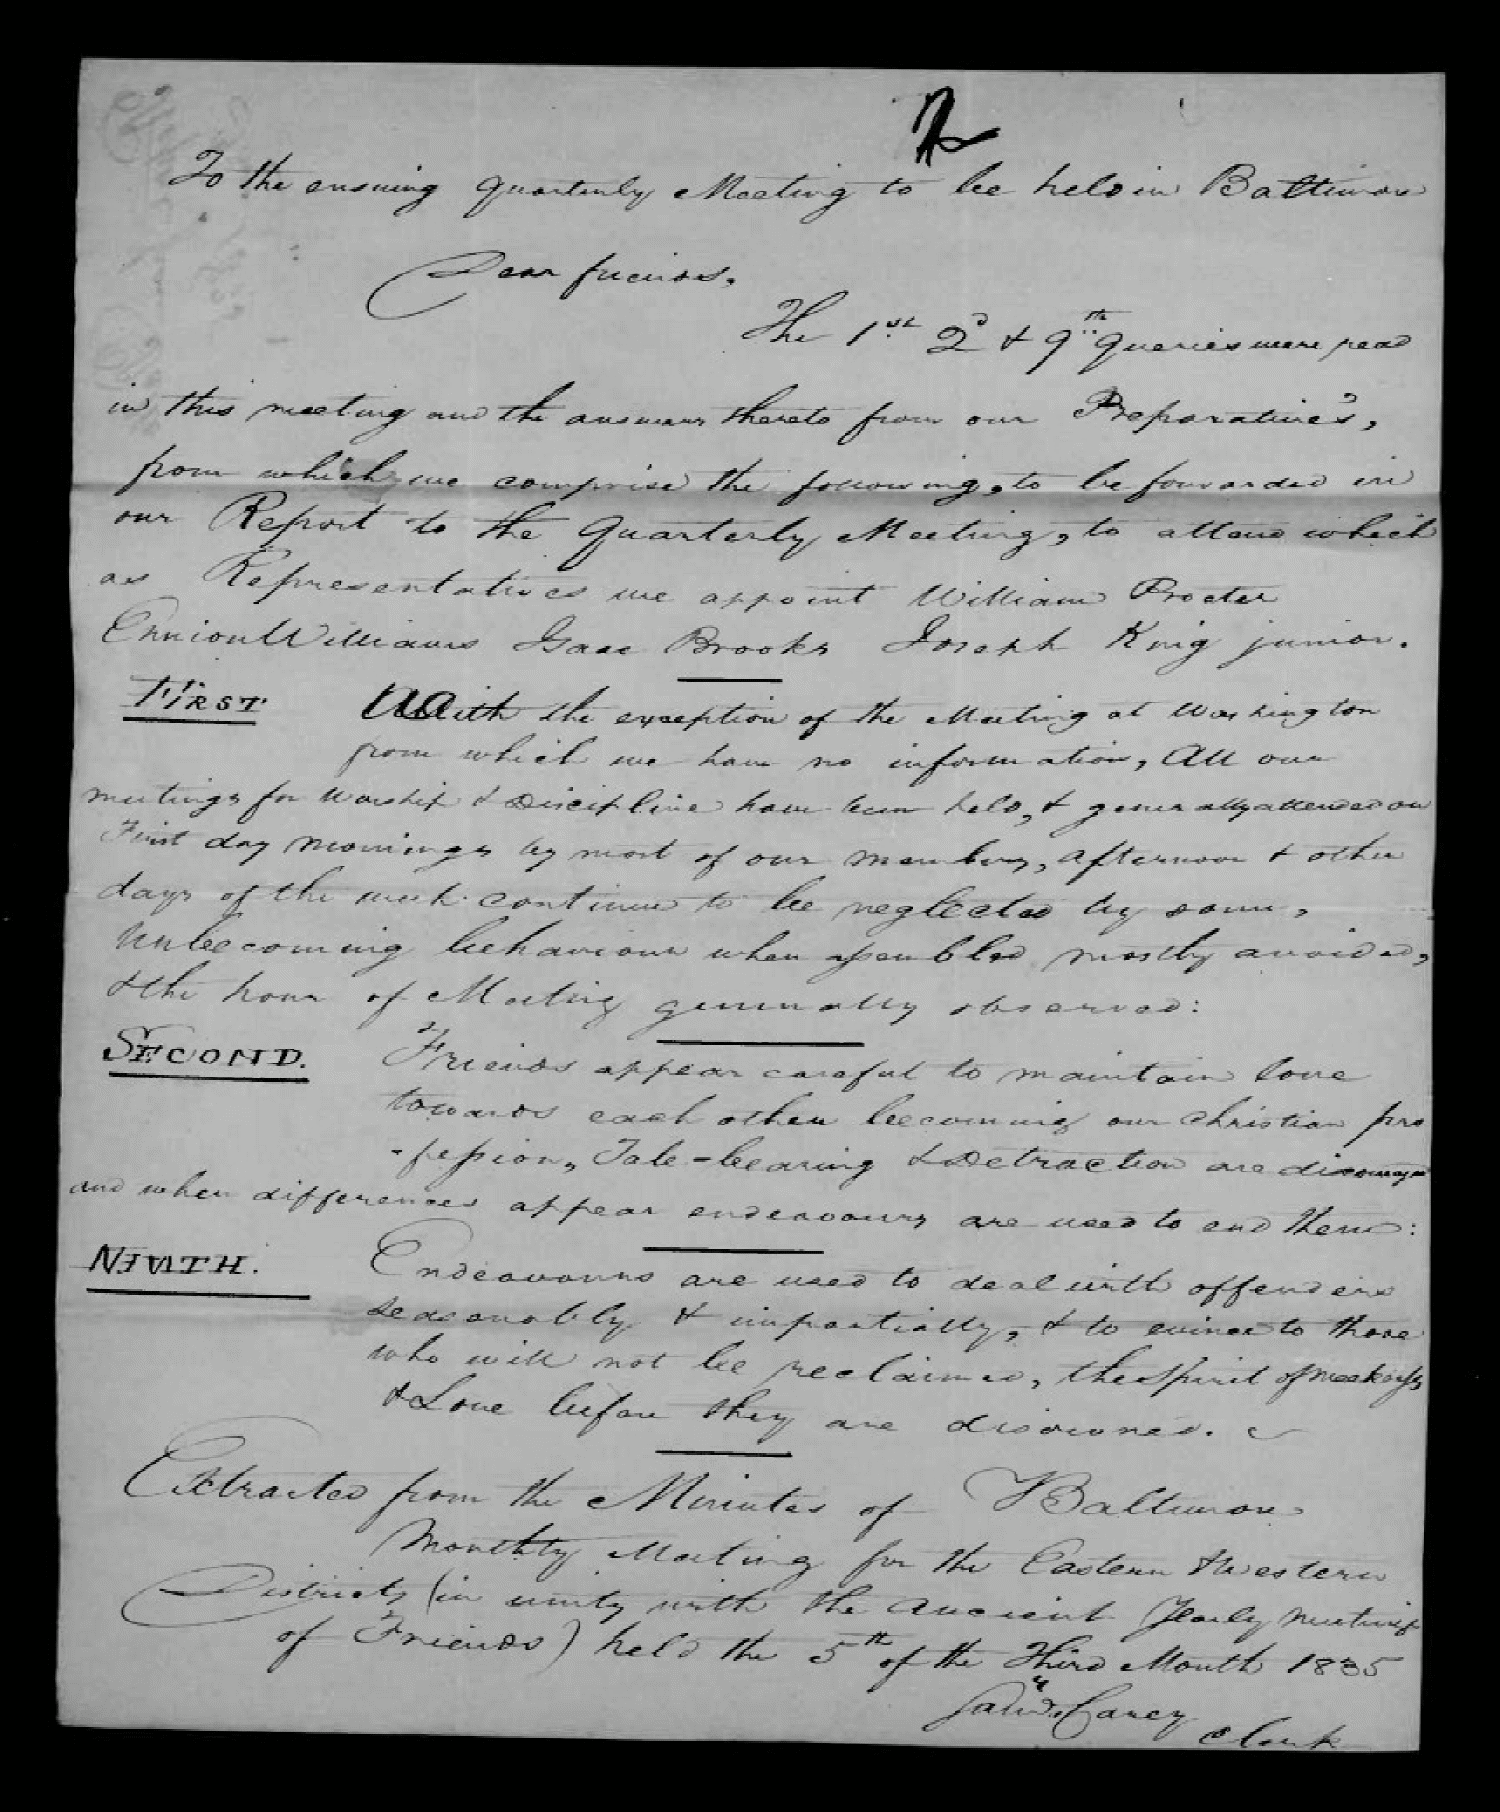 To the ensuing Quarterly Meeting to be held in Baltimore
Dear friends,
The 1st 2d & 9th Queries were read
in this meeting and the answers thereto from our Preparative's,
from which we comprise the following, to be forwarded in
our Report to the Quarterly Meeting, to attend which
as Representatives we appoint William Procter
Ennion Williams Isaac Brooks Joseph King junior.
FIRST With the exception of the Meeting at Washington
from which we have no information, All our
meetings for Worship & Discipline have been held, & generally attended on
First day mornings by most of our members, afternoon & other
days of the week continue to be neglected by some,
Unbecoming behaviour when assembled mostly avoided,
& the hour of Meeting generally observed:
SECOND. Friends appear careful to maintain love
towards each other becoming our Christian pro
-fession, Tale-bearing & Detraction are discouraged
and when differences appear endeavours are used to end them:
NINTH. Endeavours are used to deal with offenders
seasonably & impartially, & to evince to those
who will not be reclaimed, the Spirit of meekness
& Love before they are disowned.
Extracted from the Minutes of Baltimore
Monthly Meeting for the Eastern & Western
Districts (in unity with the ancient Yearly meeting
of Friends) held the 5th of the Third Month 1835
Carey
Clerk